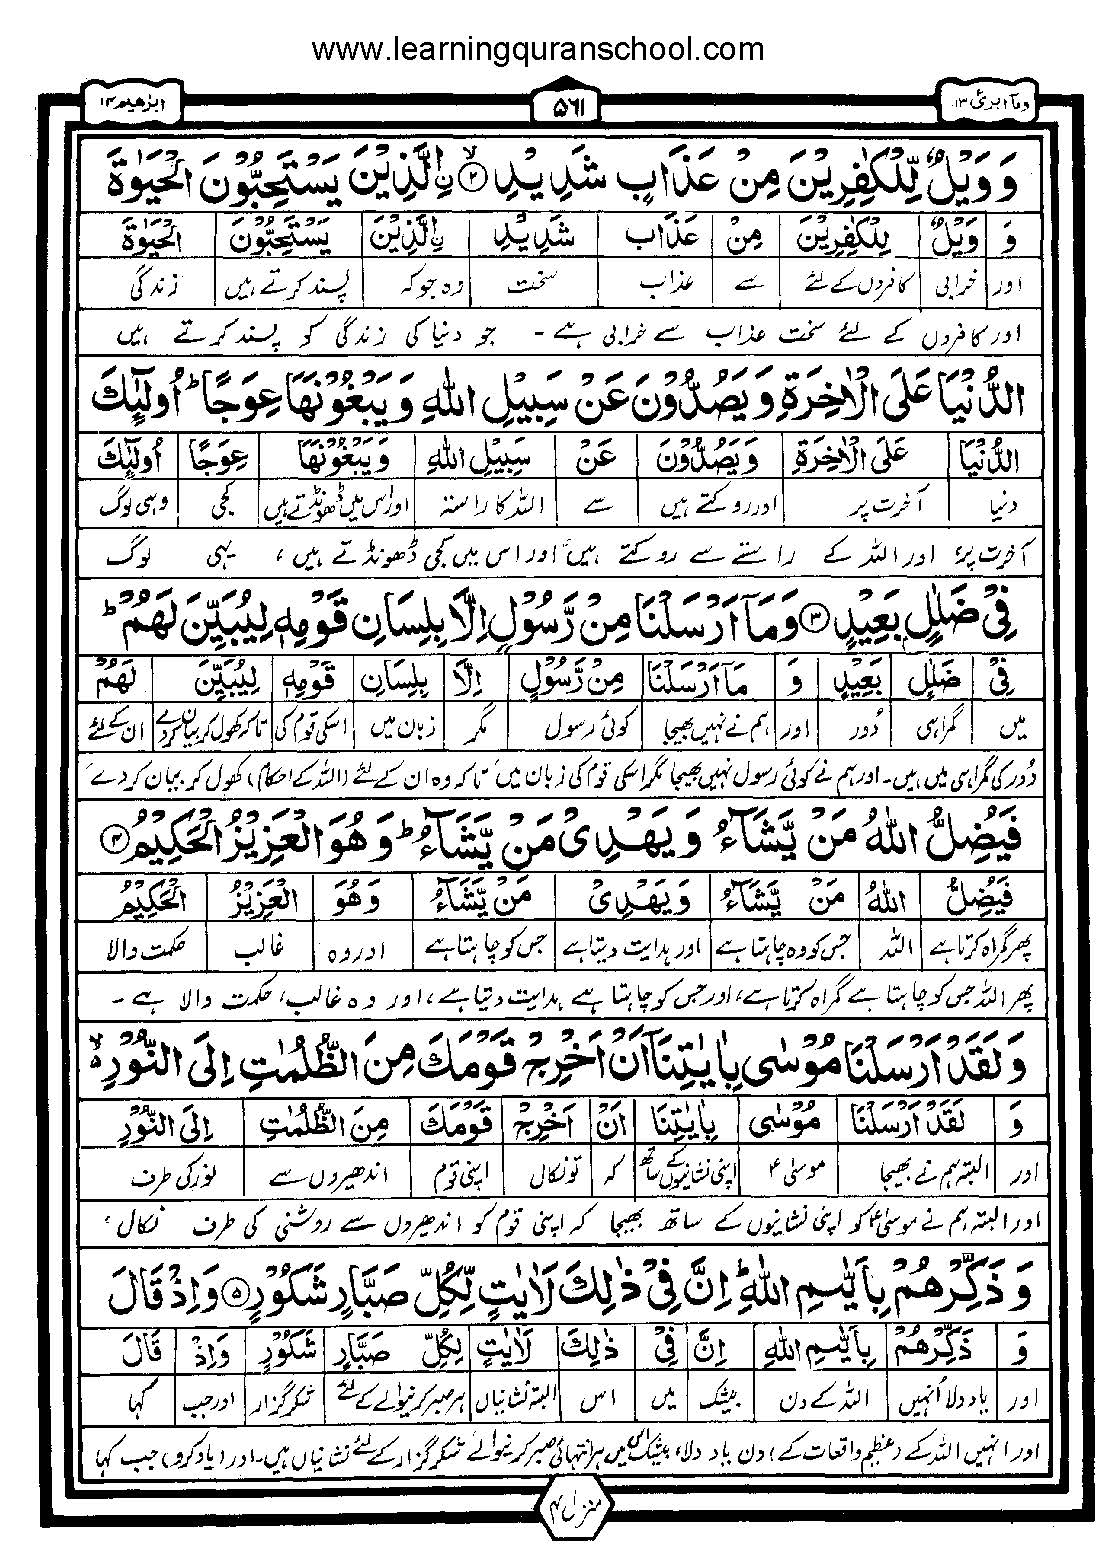 www.learningquranschool.com
ومآ ابرئ ۱۳
۵۶۱
ابرٰهیم ۱۴
وَ وَيْلٌ لِّلْكٰفِرِيْنَ مِنْ عَذَابٍ شَدِيْدِ ۙ﴿۲﴾ ۣالَّذِيْنَ يَسْتَحِبُّوْنَ الْحَيٰوةَ
وَ وَيْلٌ لِلْكٰفِرِيْنَ مِنْ عَذَابٍ شَدِيْدِ ۣالَّذِيْنَ يَسْتَحِبُّوْنَ الْحَيٰوةَ
اور خرابی کافروں کے لئے سے عذاب سخت وہ جو کہ پسند کرتے ہیں زندگی
اور کافروں کے لئے سخت عذاب سے خرابی ہے۔ جو دنیا کی زندگی کو پسند کرتے ہیں
الدُّنْيَا عَلَى الْاٰخِرَةِ وَ يَصُدُّوْنَ عَنْ سَبِيْلِ اللّٰهِ وَ يَبْغُوْنَهَا عِوَجًا ؕ اُولٰٓئِكَ
الدُّنْيَا عَلَى الْاٰخِرَةِ وَ يَصُدُّوْنَ عَنْ سَبِيْلِ اللّٰهِ وَ يَبْغُوْنَهَا عِوَجًا اُولٰٓئِكَ
دنیا آخرت پر اور روکتے ہیں سے اللہ کا راستہ اور اس میں ڈھونڈتے ہیں کجی وہی لوگ
آخرت پر، اور اللہ کے راستے سے روکتے ہیں، اور اس میں کجی ڈھونڈتے ہیں، یہی لوگ
فِيْ ضَلٰلٍۭ بَعِيْدٍ ﴿۳﴾ وَ مَاۤ اَرْسَلْنَا مِنْ رَّسُوْلٍ اِلَّا بِلِسَانِ قَوْمِهٖ لِيُبَيِّنَ لَهُمْ ؕ
فِيْ ضَلٰلٍ بَعِيْدٍ وَ مَاۤ اَرْسَلْنَا مِنْ رَّسُوْلٍ اِلَّا بِلِسَانِ قَوْمِهٖ لِيُبَيِّنَ لَهُمْ
میں گمراہی دُور اور ہم نے نہیں بھیجا کوئی رسول مگر زبان میں اسکی قوم کی تاکہ کھول کر بیان کردے ان کے لئے
دُور کی گمراہی میں ہیں۔ اور ہم نے کوئی رسول نہیں بھیجا مگر اسکی قوم کی زبان میں، تاکہ وہ ان کے لئے (اللہ کے احکام) کھول کر بیان کر دے،
فَيُضِلُّ اللّٰهُ مَنْ يَّشَآءُ وَ يَهْدِيْ مَنْ يَّشَآءُ ؕ وَ هُوَ الْعَزِيْزُ الْحَكِيْمُ ﴿۴﴾
فَيُضِلُّ اللّٰهُ مَنْ يَّشَآءُ وَ يَهْدِيْ مَنْ يَّشَآءُ وَ هُوَ الْعَزِيْزُ الْحَكِيْمُ
پھر گمراہ کرتا ہے اللہ جس کو وہ چاہتا ہے اور ہدایت دیتا ہے جس کو چاہتا ہے اور وہ غالب حکمت والا
پھر اللہ جس کو چاہتا ہے گمراہ کرتا ہے، اور جس کو چاہتا ہے ہدایت دیتا ہے، اور وہ غالب، حکمت والا ہے۔
وَ لَقَدْ اَرْسَلْنَا مُوْسٰى بِاٰيٰتِنَاۤ اَنْ اَخْرِجْ قَوْمَكَ مِنَ الظُّلُمٰتِ اِلَى النُّوْرِ ۙ۬
وَ لَقَدْ اَرْسَلْنَا مُوْسٰى بِاٰيٰتِنَا اَنْ اَخْرِجْ قَوْمَكَ مِنَ الظُّلُمٰتِ اِلَى النُّوْرِ
اور البتہ ہم نے بھیجا موسیٰؑ اپنی نشانیوں کے ساتھ کہ تو نکال اپنی قوم اندھیروں سے نور کی طرف
اور البتہ ہم نے موسیٰؑ کو اپنی نشانیوں کے ساتھ بھیجا کہ اپنی قوم کو اندھیروں سے روشنی کی طرف نکال،
وَ ذَكِّرْهُمْ بِاَيّٰىمِ اللّٰهِ ؕ اِنَّ فِيْ ذٰلِكَ لَاٰيٰتٍ لِّكُلِّ صَبَّارٍ شَكُوْرٍ ﴿۵﴾ وَ اِذْ قَالَ
وَ ذَكِّرْهُمْ بِاَيّٰىمِ اللّٰهِ اِنَّ فِيْ ذٰلِكَ لَاٰيٰتٍ لِكُلِّ صَبَّارٍ شَكُوْرٍ وَ اِذْ قَالَ
اور یاد دلا اُنہیں اللہ کے دن بیشک میں اس البتہ نشانیاں ہر صبر کرنیوالے کے لئے شکر گزار اور جب کہا
اور انہیں اللہ کے (عظیم واقعات کے) دن یاد دلا، بیشک اس میں ہر انتہائی صبر کرنیوالے، شکر گزار کے لئے نشانیاں ہیں۔ اور (یاد کرو) جب کہا
منزل ۳